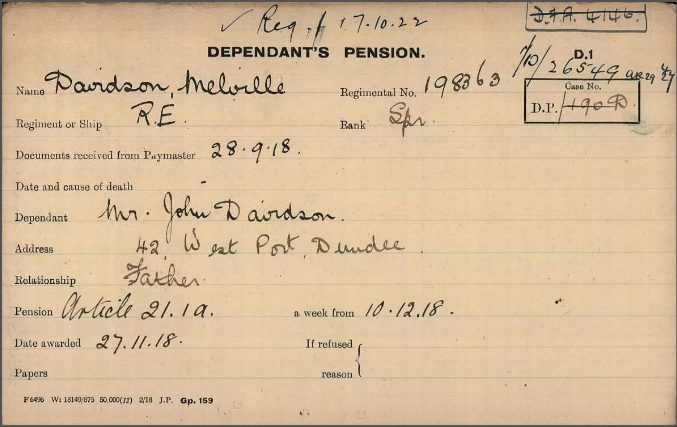 ✓ Reg. f 17.10.22
D.I.A. 4146.
DEPENDANT'S PENSION.
D.1
7/D/26549
Name Davidson, Melville Regimental No. 198363
Case No.
D.P. 190 D
Regiment or Ship R.E. Rank Spr.
Documents received from Paymaster 28.9.18.
Date and cause of death
Dependant Mr. John Davidson.
Address 42, West Port, Dundee.
Relationship Father.
Pension Article 21.1a. a week from 10.12.18.
Date awarded 27.11.18. If refused
Papers reason
F6496 Wt 18149/875 50,000(12) 2/18 J.P. Gp. 159